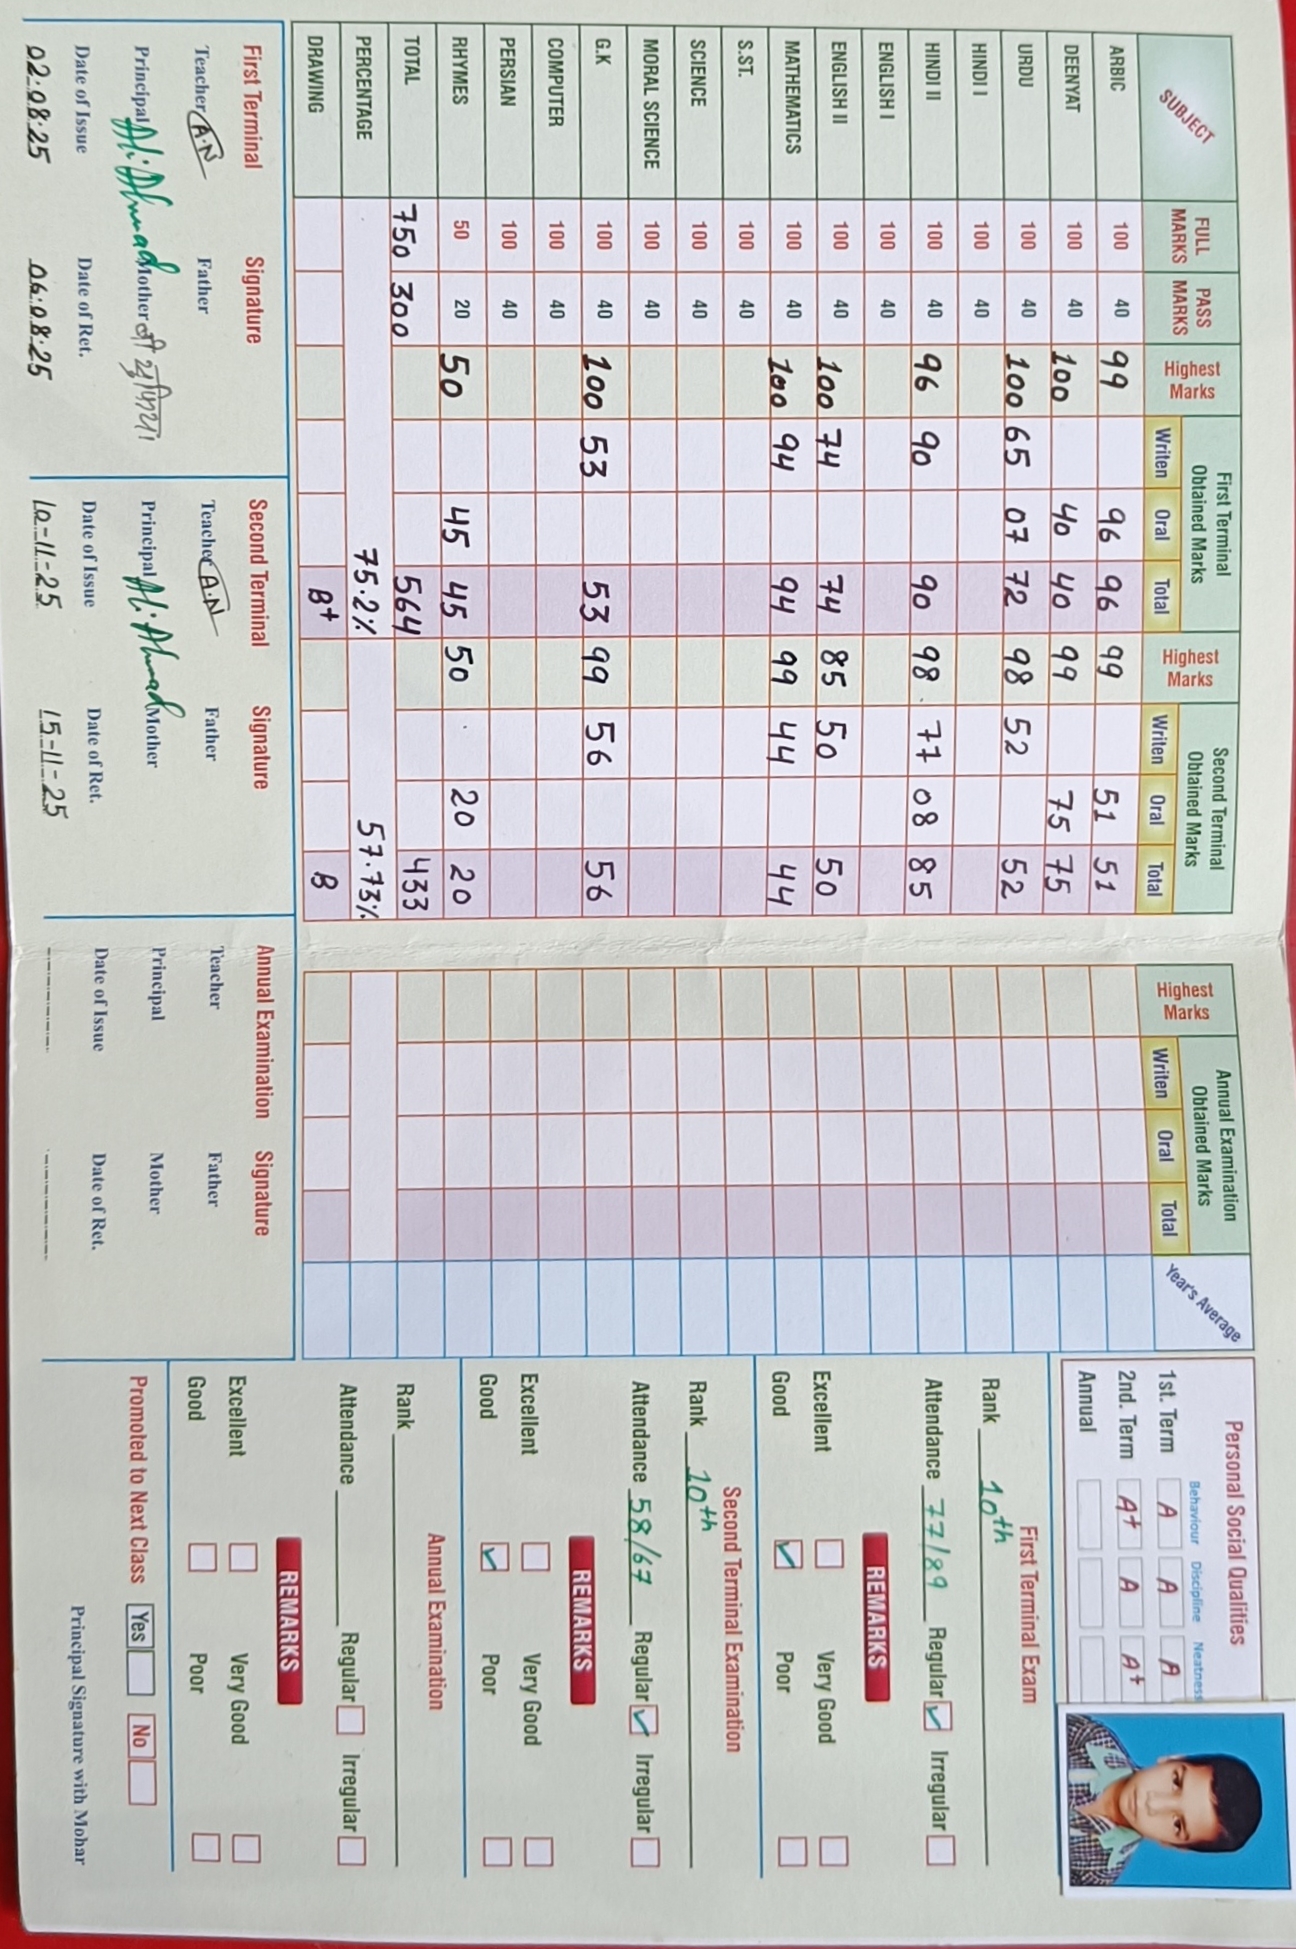 SUBJECT FULL MARKS PASS MARKS Highest Marks First Terminal Obtained Marks Writen Oral Total Highest Marks Second Terminal Obtained Marks Writen Oral Total Highest Marks Annual Examination Obtained Marks Writen Oral Total Year's Average
ARBIC 100 40 99 96 96 99 51 51
DEENYAT 100 40 100 40 40 99 75 75
URDU 100 40 100 65 07 72 98 52 52
HINDI I 100 40
HINDI II 100 40 96 90 90 98 77 08 85
ENGLISH I 100 40
ENGLISH II 100 40 100 74 74 85 50 50
MATHEMATICS 100 40 100 94 94 99 44 44
S.ST. 100 40
SCIENCE 100 40
MORAL SCIENCE 100 40
G.K 100 40 100 53 53 99 56 56
COMPUTER 100 40
PERSIAN 100 40
RHYMES 50 20 50 45 45 50 20 20
TOTAL 750 300 564 433
PERCENTAGE 75.2% 57.73%
DRAWING B+ B
First Terminal Signature
Teacher A.N Father
Principal Ali Ahmad Mother
Date of Issue Date of Ret.
02.08.25 06.08.25
Second Terminal Signature
Teacher A.N Father
Principal Ali Ahmad Mother
Date of Issue Date of Ret.
10-11-25 15-11-25
Annual Examination Signature
Teacher Father
Principal Mother
Date of Issue Date of Ret.
Personal Social Qualities
Behaviour Discipline Neatness
1st. Term A A A
2nd. Term A+ A A+
Annual
First Terminal Exam
Rank 10th
Attendance 77/89 Regular ✓ Irregular
REMARKS
Excellent Very Good
Good ✓ Poor
Second Terminal Examination
Rank 10th
Attendance 58/67 Regular ✓ Irregular
REMARKS
Excellent Very Good
Good ✓ Poor
Annual Examination
Rank
Attendance Regular Irregular
REMARKS
Excellent Very Good
Good Poor
Promoted to Next Class Yes No
Principal Signature with Mohar